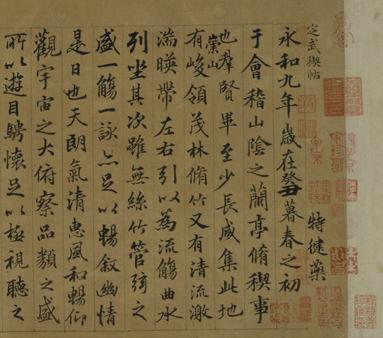 特健藥
定武禊帖
永和九年歲在癸丑暮春之初
于會稽山陰之蘭亭脩稧事
也羣賢畢至少長咸集此地
有崇山峻領茂林脩竹又有清流激
湍暎帶左右引以為流觴曲水
列坐其次雖無絲竹管弦之
盛一觴一詠亦足以暢敘幽情
是日也天朗氣清惠風和暢仰
觀宇宙之大俯察品類之盛
所以遊目騁懷足以極視聽之